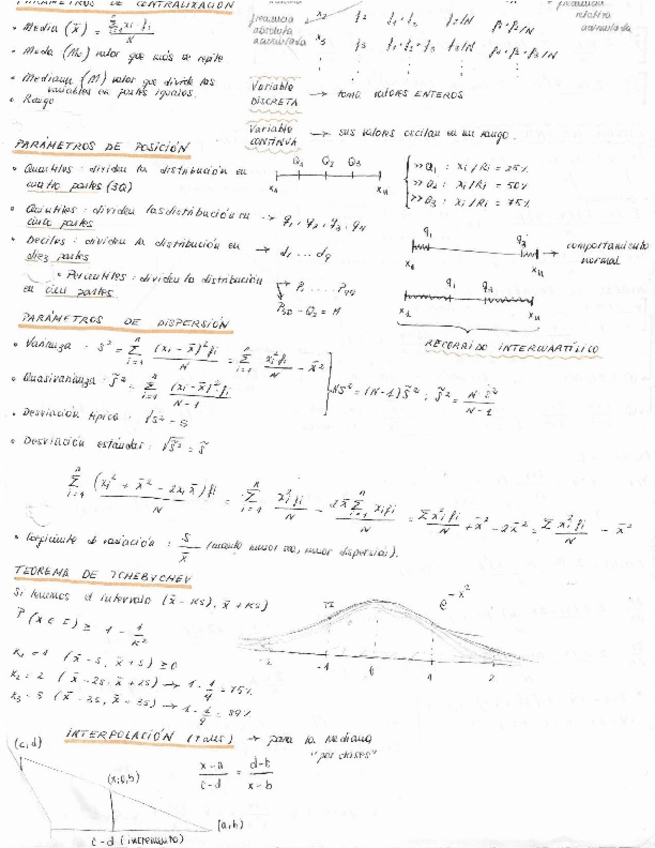 PARÁMETROS DE CENTRALIZACIÓN
• Media (x̄) = Σ xi·fi / N
• Moda (Mo) valor que más se repite
• Mediana (M) valor que divide las
variables en partes iguales.
• Rango
frecuencia absoluta acumulada
x2 f2 f1+f2 f2/N f1+f2/N
x3 f3 f1+f2+f3 f3/N f1+f2+f3/N
relativa acumulada
Variable DISCRETA → toma valores ENTEROS
Variable CONTINUA → sus valores oscilan en un rango.
PARÁMETROS DE POSICIÓN
• Cuartiles: dividen la distribución en
cuatro partes (3Q)
Q1 Q2 Q3
x1 xn
>> Q1 : xi / Ri = 25%
>> Q2 : xi / Ri = 50%
>> Q3 : xi / Ri = 75%
• Quintiles: dividen las distribución en → q1, q2, q3, q4
cinco partes
• Deciles: dividen la distribución en → d1 ... d9
diez partes
• Percentiles: dividen la distribución
en cien partes
P1 .... P99
P50 - Q2 = M
q1 q3 → comportamiento normal
x1 xn
q1 q3
x1 xn
RECORRIDO INTERCUARTÍLICO
PARÁMETROS DE DISPERSIÓN
• Varianza: s² = Σ (xi - x̄)² fi / N = Σ xi² fi / N - x̄²
• Quasivarianza: s̃² = Σ (xi - x̄)² fi / N-1
Ns² = (N-1) s̃² ; s̃² = N s² / N-1
• Desviación típica: √s² = s
• Desviación estándar: √s̃² = s̃
Σ (xi² + x̄² - 2xi x̄) fi / N = Σ xi² fi / N - 2x̄ Σ xi fi / N = Σ xi² fi / N + x̄² - 2x̄² = Σ xi² fi / N - x̄²
• Coeficiente d variación: s / x̄ (cuanto menor sea, menor dispersión).
TEOREMA DE TCHEBYCHEV
Si tenemos el intervalo (x̄ - Ks, x̄ + Ks)
P (x ∈ I) ≥ 1 - 1/K²
K1 = 1 (x̄ - s, x̄ + s) ≥ 0
K2 = 2 (x̄ - 2s, x̄ + 2s) → 1 - 1/4 = 75%
K3 = 3 (x̄ - 3s, x̄ - 3s) → 1 - 1/9 = 89%
e^-x²
-2 -1 0 1 2
INTERPOLACIÓN (Tales) → para la mediana
"por clases"
x-a / c-d = d-b / x-b
(c,d)
(x,b)
(a,b)
c-d (incremento)